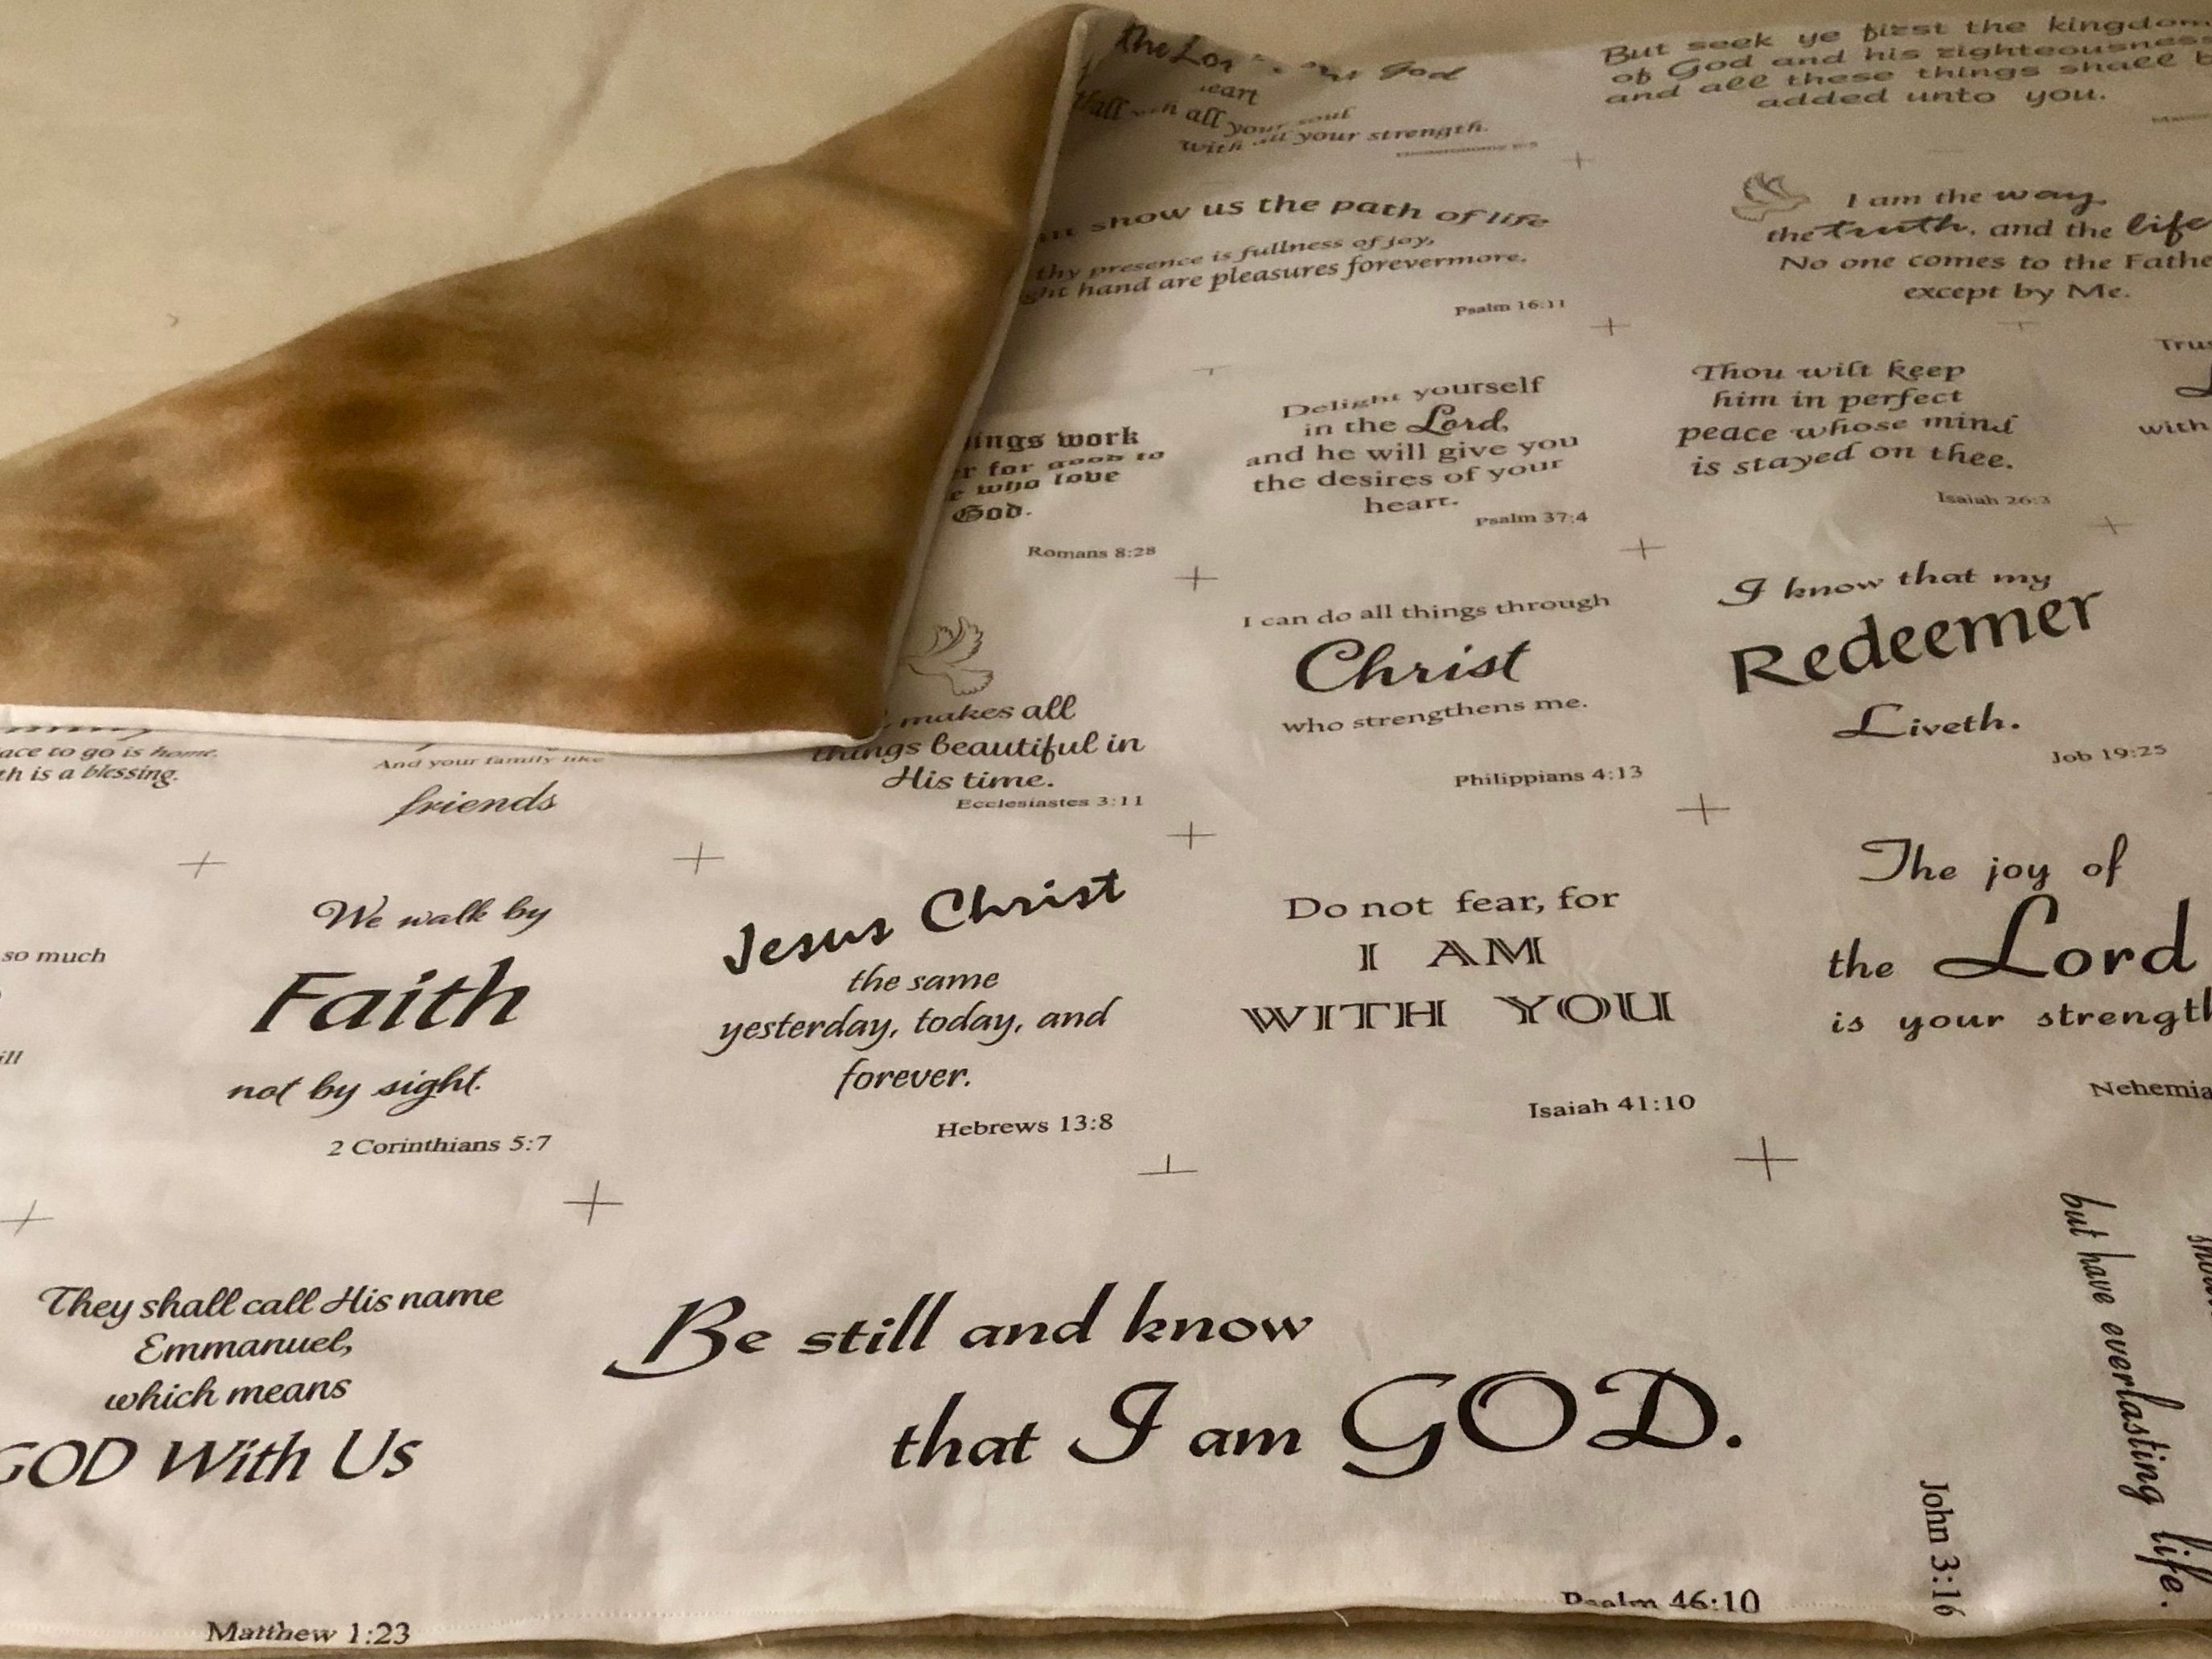 the Lor
God
eart
all your soul
with all your strength.
But seek ye first the kingdom
of God and his righteousness
and all these things shall b
added unto you.
show us the path of life
thy presence is fullness of joy,
ght hand are pleasures forevermore.
Psalm 16:11
I am the way,
the truth, and the life
No one comes to the Fathe
except by Me.
ings work
r for good to
e who love
God.
Romans 8:28
Delight yourself
in the Lord,
and he will give you
the desires of your
heart.
Psalm 37:4
Thou wilt keep
him in perfect
peace whose mind
is stayed on thee.
Isaiah 26:3
Trus
L
with
ace to go is home.
th is a blessing.
And your family like
friends
makes all
things beautiful in
His time.
Ecclesiastes 3:11
I can do all things through
Christ
who strengthens me.
Philippians 4:13
I know that my
Redeemer
Liveth.
Job 19:25
so much
ill
We walk by
Faith
not by sight.
2 Corinthians 5:7
Jesus Christ
the same
yesterday, today, and
forever.
Hebrews 13:8
Do not fear, for
I AM
WITH YOU
Isaiah 41:10
The joy of
the Lord
is your strengt
Nehemia
They shall call His name
Emmanuel,
which means
GOD With Us
Matthew 1:23
Be still and know
that I am GOD.
Psalm 46:10
but have everlasting life.
John 3:16